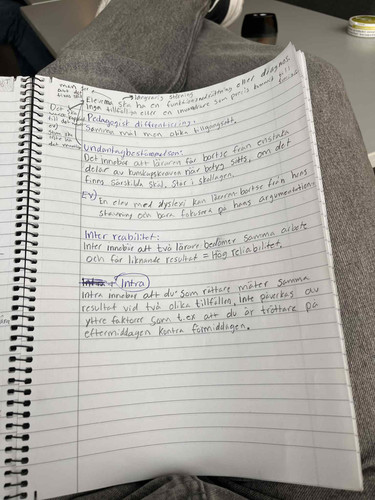 långvarig störning
Eleven ska ha en funktionsnedsättning eller diagnos.
Inga tillfälliga eller en inverkare som precis kommit till
Pedagogist differentiering:
Samma mål men olika tillgångssätt.
Undantagbestämmelsen:
Det innebär att läraren får bortse från enstaka
delar av kunskapskraven när betyg sätts, om det
finns särskilda skäl. Står i skollagen.
Ex) En elev med dyslexi kan läraren bortse från hans
stavning och bara fokusera på hans argumentation.
Inter reabilitet:
Inter innebär att två lärare bedömer samma arbete
och får liknande resultat = Hög reliabilitet.
Intra
Intra innebär att du som rättare mäter samma
resultat vid två olika tillfällen. Inte påverkas av
yttre faktorer som t.ex att du är tröttare på
eftermiddagen kontra förmiddagen.